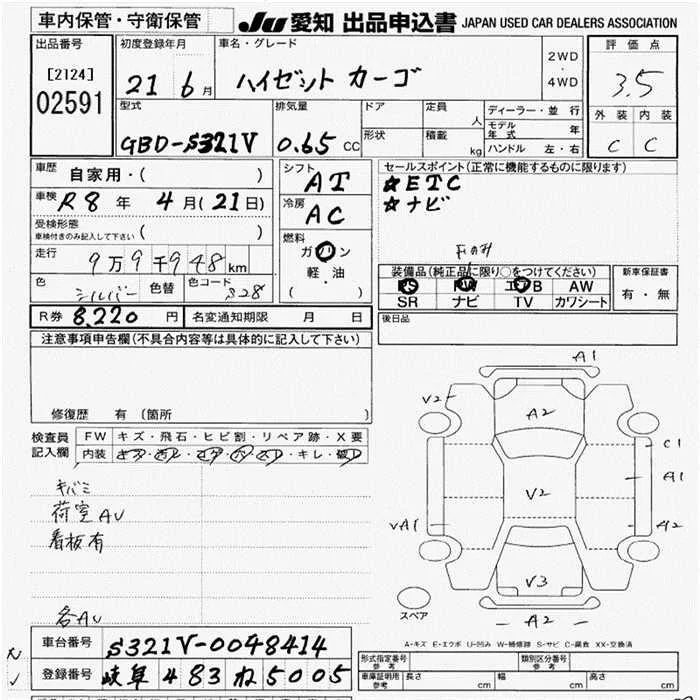 車内保管・守衛保管
JU 愛知 出品申込書 JAPAN USED CAR DEALERS ASSOCIATION
出品番号 初度登録年月 車名・グレード 2WD・4WD 評価点
[2124] 02591 21 6月 ハイゼット カーゴ 3.5
型式 排気量 ドア 定員 人 ディーラー・並行 外装 内装
モデル年式 年
GBD-S321V 0.65 CC 形状 積載 kg ハンドル 左・右 C C
車歴 自家用・( ) シフト AT セールスポイント(正常に機能するものに限ります)
☆ETC
車検 R8年 4月(21日) 冷房 AC ☆ナビ
受検形態 車検付きのみ記入して下さい ( )
燃料 ガソリン
軽・油
( )
走行 9万9千948km
色 シルバー 色替 色コード S28
装備品(純正品に限り○をつけてください) 新車保証書
PS PW エアB AW 有・無
SR ナビ TV カワシート
R券 8,220円 名変通知期限 月 日 後日品
注意事項申告欄(不具合内容等は具体的に記入して下さい)
修復歴 有 (箇所 )
検査員記入欄 FW キズ・飛石・ヒビ割・リペア跡・X要
内装 キレ
キバミ
荷室AU
看板有
各AU
A1
V2
A2
C1
A1
V2
VA1
A2
V3
スペア
A2
A-キズ E-エクボ U-凹み W-補修跡 S-サビ C-腐食 XX-交換済
車台番号 S321V-0048414
登録番号 岐阜 483 ね 5005
形式指定番号 参考 類別区分番号 参考
車庫証明用 参考 長さ cm 幅 cm 高さ cm